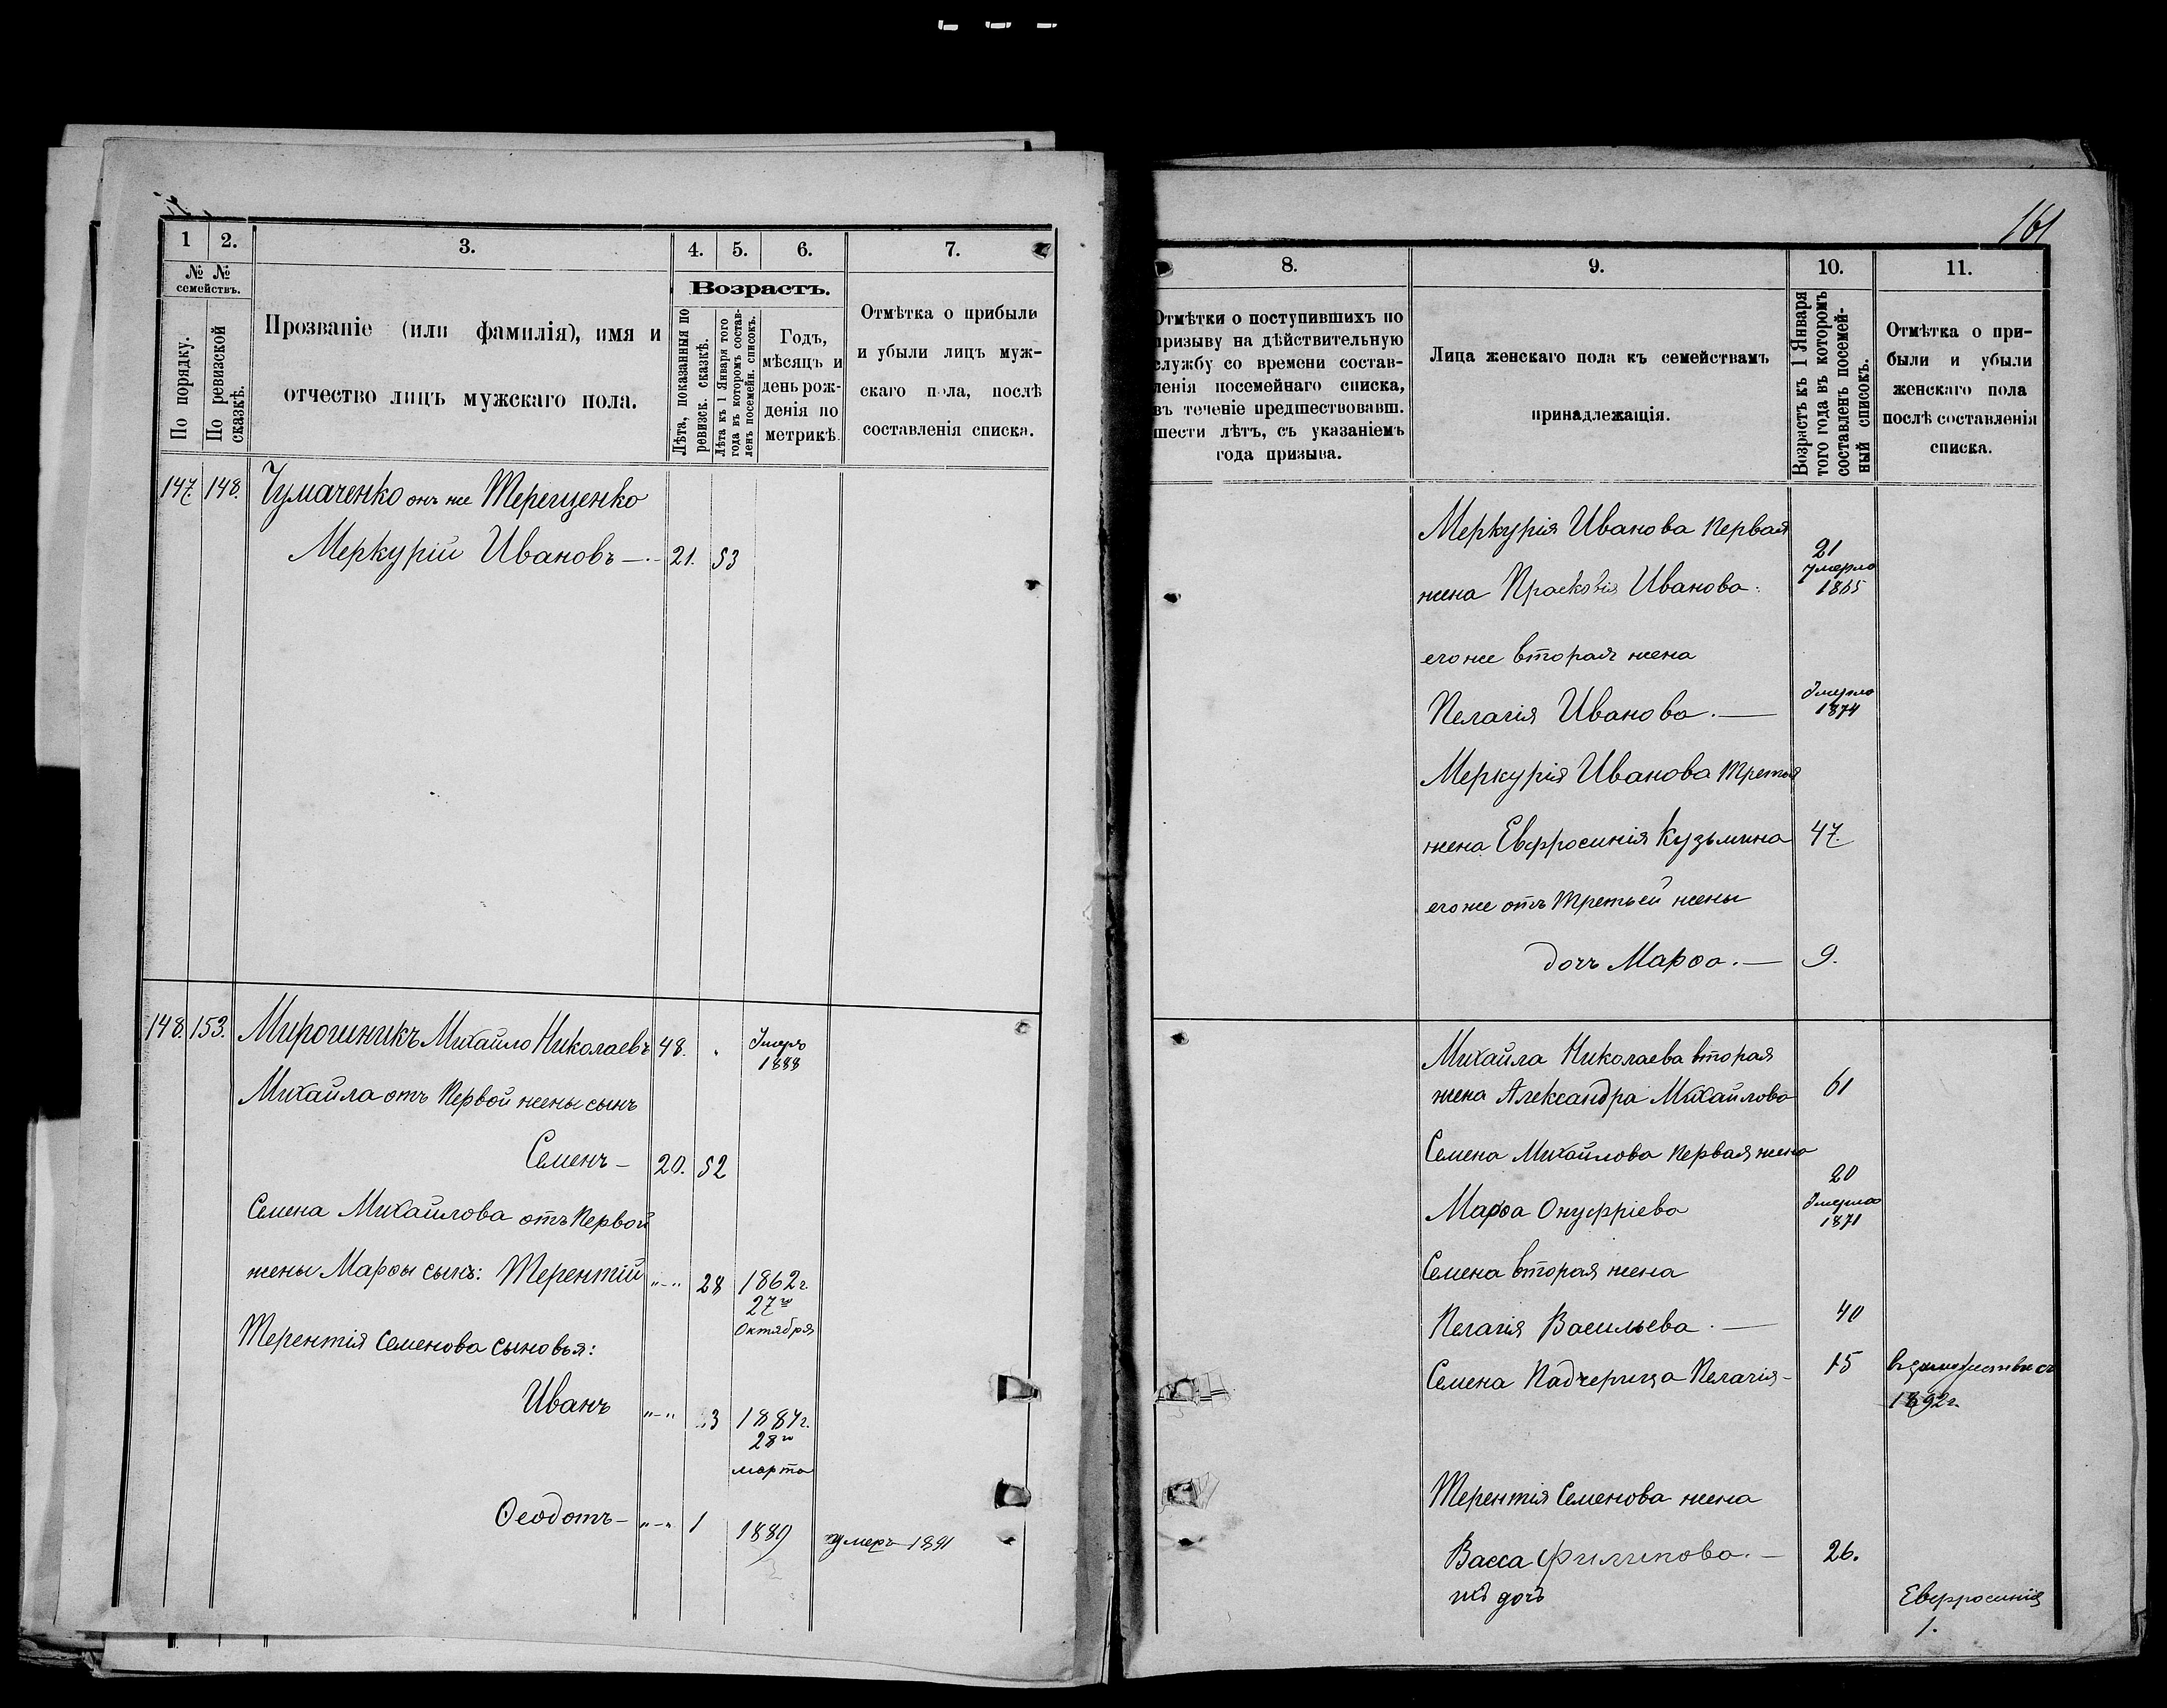 161
1
2.
3.
4.
5.
6.
7.
№ №
семействъ.
По порядку.
По ревизской
сказкѣ.
Прозваніе (или фамилія), имя и
отчество лицъ мужскаго пола.
Возрастъ.
Лѣта, показанныя по
ревизск. сказкѣ.
Лѣта къ 1 Января того
года въ которомъ состав-
ленъ посемейн. списокъ.
Годъ,
мѣсяцъ и
день рож-
денія по
метрикѣ.
Отмѣтка о прибыли
и убыли лицъ муж-
скаго пола, послѣ
составленія списка.
147. 148. Чумаченко онъ же Терещенко
Меркурій Ивановъ — 21. 53
148. 153. Мирошникъ Михайло Николаевъ 48. Умеръ
1888
Михайла отъ Первой жены сынъ
Семенъ — 20. 52
Семена Михайлова отъ Первой
жены Марѳы сынъ: Терентій „—„ 28 1862 г.
27го
Октября
Терентія Семенова сыновья:
Иванъ „—„ 3 1887 г.
28го
марта
Ѳеодотъ — „—„ 1 1889 умеръ 1891
8.
9.
10.
11.
Отмѣтки о поступившихъ по
призыву на дѣйствительную
службу со времени состав-
ленія посемейнаго списка,
въ теченіе предшествовавш.
шести лѣтъ, съ указаніемъ
года призыва.
Лица женскаго пола къ семействамъ
принадлежащія.
Возрастъ къ 1 Января
того года въ которомъ
составленъ посемей-
ный списокъ.
Отмѣтка о при-
были и убыли
женскаго пола
послѣ составленія
списка.
Меркурія Иванова Первая
21
умерла
жена Прасковія Иванова. 1865
его же вторая жена
Умерла
Пелагія Иванова. — 1874
Меркурія Иванова Третья
жена Евфросинія Кузьмина 47.
его же отъ Третьей жены
дочь Марѳа. — 9.
Михайла Николаева вторая
жена Александра Михайлова 61
Семена Михайлова Первая жена
20
Марѳа Онуфріева Умерла
1871
Семена вторая жена
Пелагія Васильева. — 40
Семена Падчерица Пелагія — 15
1892 г.
Терентія Семенова жена
Васса Филипова. — 26.
ихъ дочь Евфросинія
1.